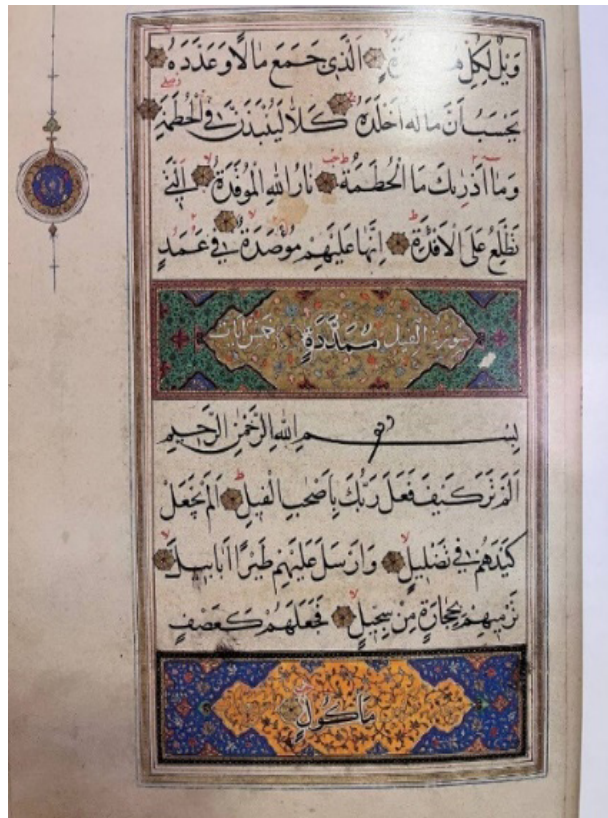 وَيْلٌ لِكُلِّ هُمَزَةٍ لُمَزَةٍ اَلَّذِي جَمَعَ مَالًا وَعَدَّدَهُ
يَحْسَبُ اَنَّ مَالَهُ اَخْلَدَهُ كَلَّا لَيُنْبَذَنَّ فِي الْحُطَمَةِ
وَمَا اَدْرٰىكَ مَا الْحُطَمَةُ نَارُ اللهِ الْمُوقَدَةُ اَلَّتِي
تَطَّلِعُ عَلَى الْاَفْئِدَةِ اِنَّهَا عَلَيْهِمْ مُؤْصَدَةٌ فِي عَمَدٍ
سورة الفيل مُمَدَّدَةٍ خمس ايات
بِسْمِ اللهِ الرَّحْمٰنِ الرَّحِيمِ
اَلَمْ تَرَ كَيْفَ فَعَلَ رَبُّكَ بِاَصْحَابِ الْفِيلِ اَلَمْ يَجْعَلْ
كَيْدَهُمْ فِي تَضْلِيلٍ وَاَرْسَلَ عَلَيْهِمْ طَيْرًا اَبَابِيلَ
تَرْمِيهِمْ بِحِجَارَةٍ مِنْ سِجِّيلٍ فَجَعَلَهُمْ كَعَصْفٍ
مَأْكُولٍ